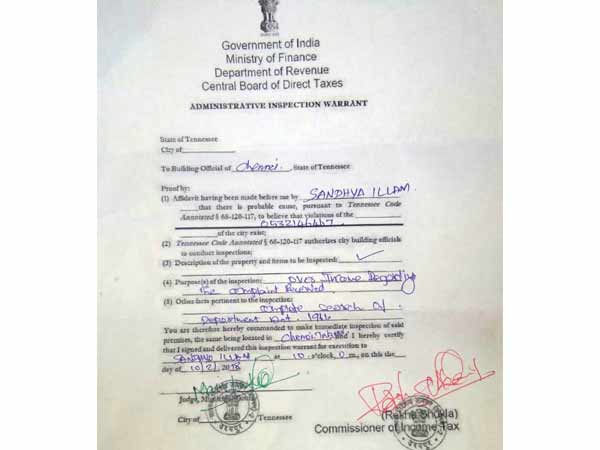 Government of India
Ministry of Finance
Department of Revenue
Central Board of Direct Taxes
ADMINISTRATIVE INSPECTION WARRANT
State of Tennessee
City of
To Building Official of Chennai. State of Tennessee
Proof by:
(1) Affidavit having been made before me by SANDHYA ILLAM,
that there is probable cause, pursuant to Tennessee Code
Annotated § 68-120-117, to believe that violations of the
of the city exist;
(2) Tennessee Code Annotated § 68-120-117 authorizes city building officials
to conduct inspections;
(3) Description of the property and items to be inspected:
(4) Purpose(s) of the inspection: over Income Regarding
the complaint Received
(5) Other facts pertinent to the inspection:
complete search of
Department
You are therefore hereby commanded to make immediate inspection of said
premises, the same being located in Chennai and I hereby certify
that I signed and delivered this inspection warrant for execution to
SANDHYA ILLAM at 10 o'clock, m., on this the
day of 10/2/2018
Judge,
City of Tennessee
(Rekha Shukla)
Commissioner of Income Tax